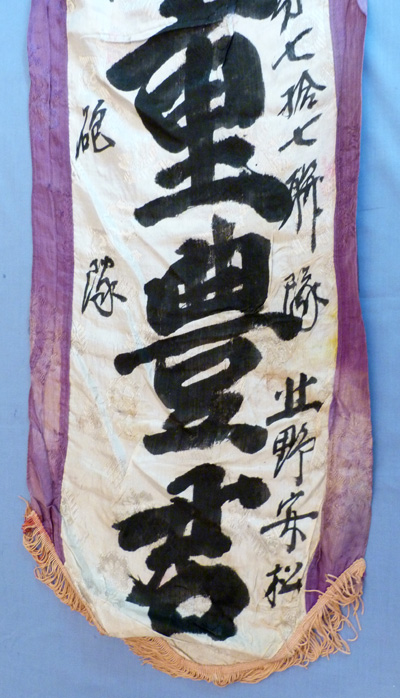 第七拾七聯隊 北野安松
重豊君
砲隊